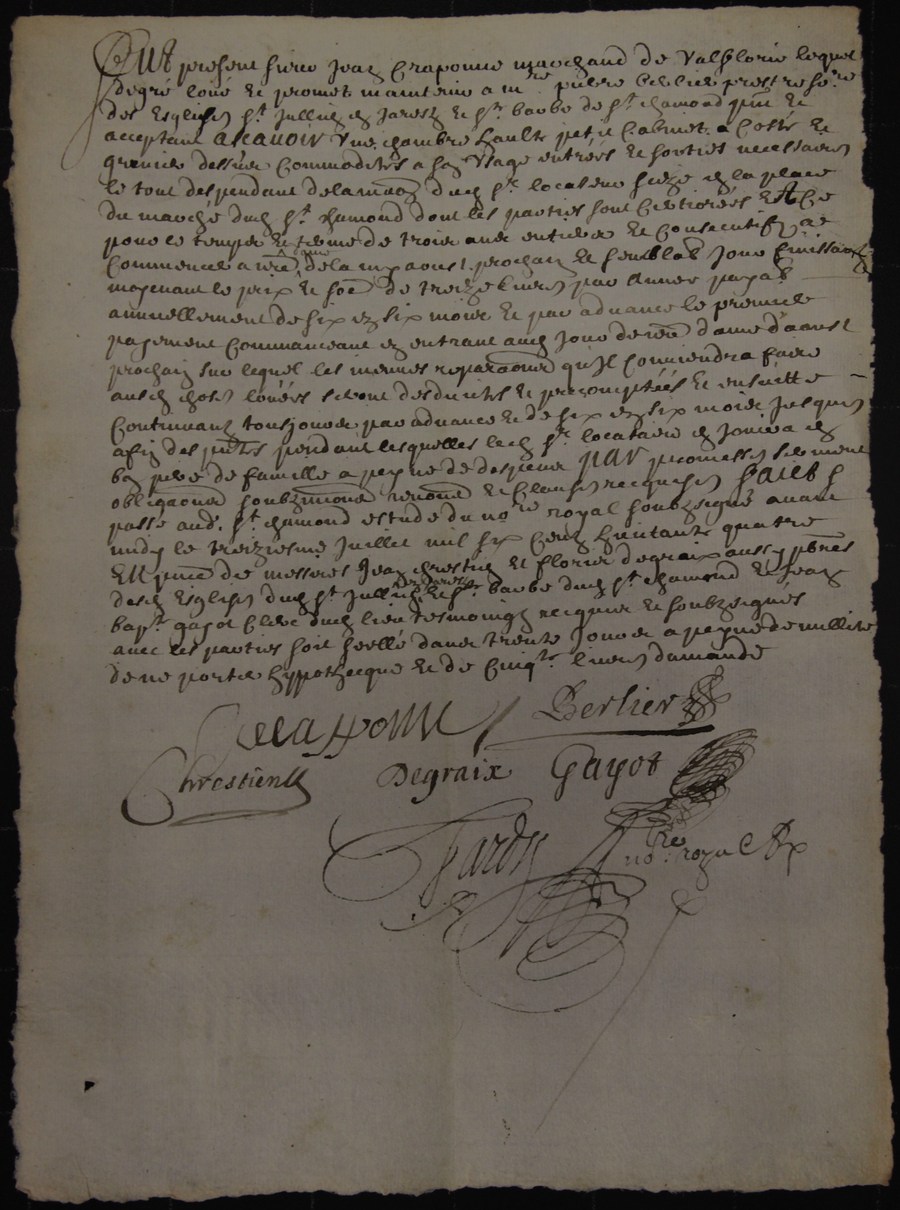 Fut present sieur Jean Craponne marchand de Valfloris lequel
degré loue et promet maintenir a m.re pierre berlier prestre so.re
des Esglises S.t Jullien en Jarestz et S.te barbe de S.t chamond pnt et
acceptant ascavoir Une chambre haulte petit Cabinet a Costé et
grenier dessus Commodités a son Usage entrées et sorties necessaires
le tout despendant de la maison dud S.r locateur size en la place
du marché dud S.t chamond dont les parties sont certiorées Et Ce
pour le temps et terme de trois ans entiers et Consecutifz
Commence a nre dame de la my aoust prochain et semblab Jour finissant
moyenant le prix et som de treize livres par Année payab
annuellement de six en six mois et par advance le premier
payement Commenceant en entrant aud Jour de nre dame d'aoust
prochain sur lequel les menues reparaons qu'Il Conviendra faire
ausd choses louées seront desduites et precomptées et ensuitte
Continuant tousjours par advance et de six en six mois Jusques
a fin des pntes pendant lesquelles led S.r locataire en Jouira en
bon pere de famille a peyne de despens par promesses serment
obligaons soubzmissions renons et Clauses requises faict et
passé aud. S.t chamond estude du no.re royal soubzsigné avant
midy le treiziesme Juillet mil six Cents huitante quatre
En pnce de messires Jean chrestien et floris degraix aussy pbres
desd Esglises dud S.t Jullien en Jarestz et S.te barbe dud S.t chamond et Jean
bap.te gayot Clerc dud lieu tesmoingz requis et soubzsignés
avec les parties soit scellé dans trente Jours a peyne de nullité
de ne porter hypothecque et de Cinq.te livres damande
Craponne Berlier
Chrestien Degraix Gayot
Tardy
no.re royal